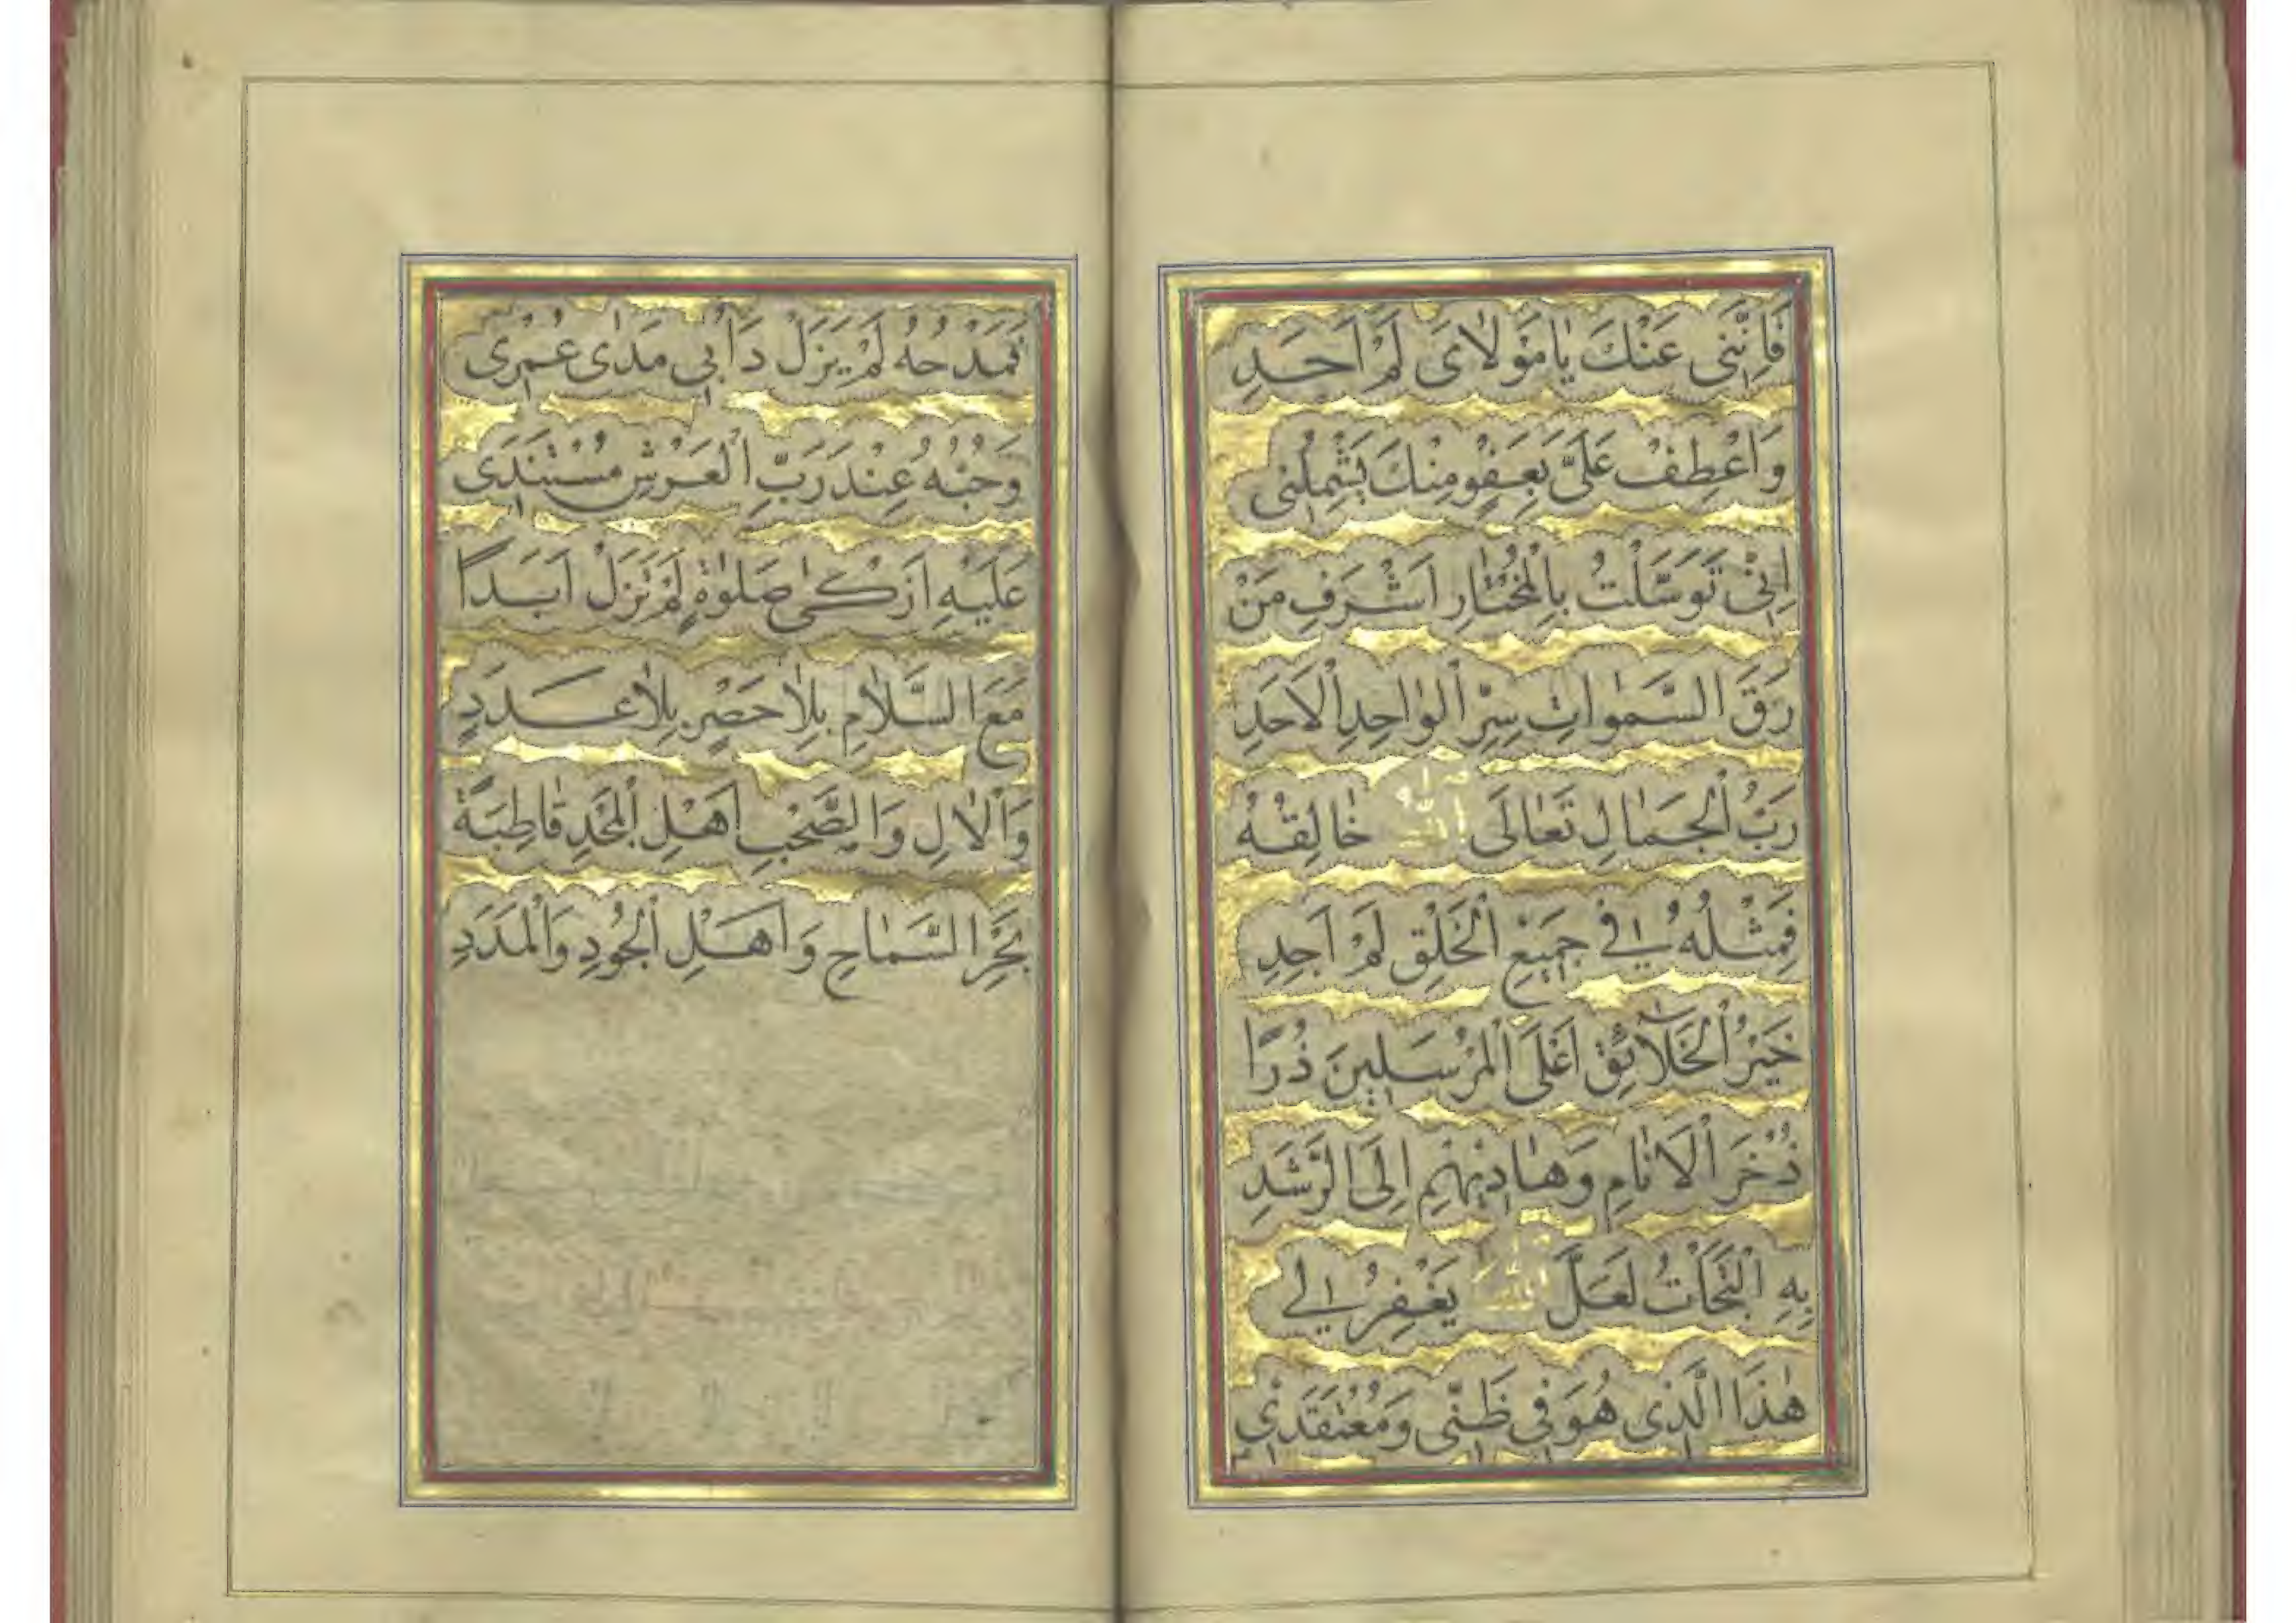 فَاِنَّنِى عَنْكَ يٰا مَوْلاٰىَ لَمْ اَحَدِ
وَاعْطِفْ عَلَىَّ بِعَفْوٍ مِنْكَ يَشْمِلُنِى
اِنِّى تَوَسَّلْتُ بِالْمُخْتٰارِ اَشْرَفِ مَنْ
رَقَى السَّمٰوٰاتِ سِرِّ الْوٰاحِدِ الْاَحَدِ
رَبُّ الْجَمٰالِ تَعٰالَى اللّٰهُ خٰالِقُهُ
فَمِثْلُهُ فِى جَمِيْعِ الْخَلْقِ لَمْ اَجِدِ
خَيْرُ الْخَلاٰئِقِ اَعْلَى الْمُرْسَلِينَ ذُرًا
ذُخْرَ الْاَنٰامِ وَهٰادِيْهِمْ اِلَى الرَّشَدِ
بِهِ الْتَجَأْتُ لَعَلَّ اللّٰهَ يَغْفِرُ لِى
هٰذَا الَّذِى هُوَ فِى ظَنِّى وَمُعْتَقَدِى
فَمَدْحُهُ لَمْ يَزَلْ دَأْبِى مَدٰى عُمْرِى
وَحُبُّهُ عِنْدَ رَبِّ الْعَرْشِ مُسْتَنَدِى
عَلَيْهِ اَزْكٰى صَلوٰةٍ لَمْ تَزَلْ اَبَدًا
مَعَ السَّلاٰمِ بِلاٰ حَصْرٍ بِلاٰ عَدَدٍ
وَالْاٰلِ وَالصَّحْبِ اَهْلِ الْمَجْدِ قٰاطِبَةً
بَحْرِ السَّمٰاحِ وَاَهْلِ الْجُودِ وَالْمَدَدِ